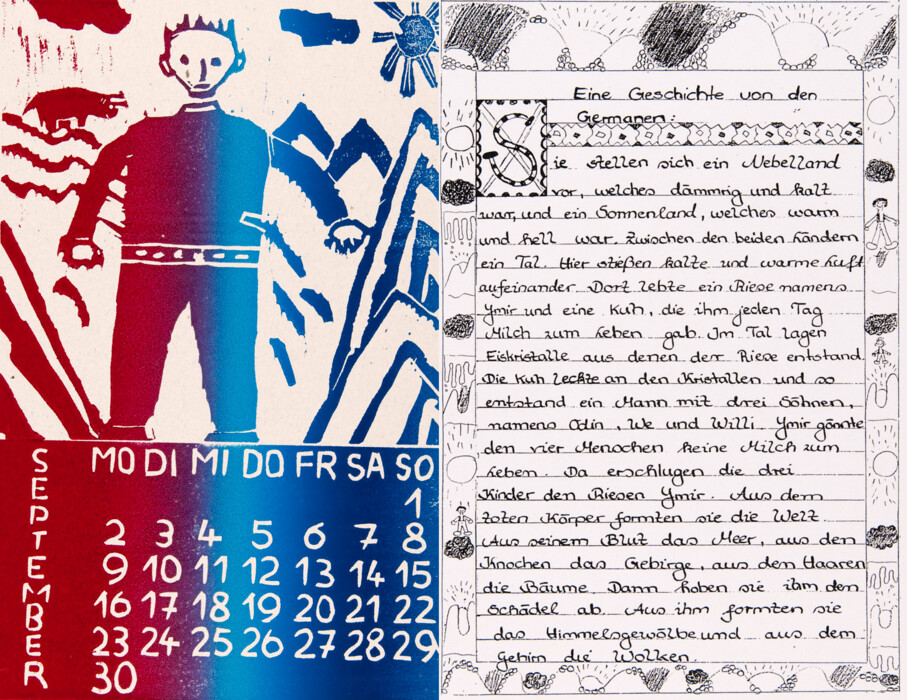 SEPTEMBER
MO DI MI DO FR SA SO
1
2 3 4 5 6 7 8
9 10 11 12 13 14 15
16 17 18 19 20 21 22
23 24 25 26 27 28 29
30
Eine Geschichte von den
Germanen:
Sie stellen sich ein Nebelland
vor, welches dämmrig und kalt
war, und ein Sonnenland, welches warm
und hell war. Zwischen den beiden Ländern
ein Tal. Hier stießen kalte und warme Luft
aufeinander. Dort lebte ein Riese namens
Ymir und eine Kuh, die ihm jeden Tag
Milch zum Leben gab. Im Tal lagen
Eiskristalle aus denen der Riese entstand.
Die Kuh leckte an den Kristallen und so
entstand ein Mann mit drei Söhnen,
namens Odin, We und Willi. Ymir gönnte
den vier Menschen keine Milch zum
Leben. Da erschlugen die drei
Kinder den Riesen Ymir. Aus dem
toten Körper formten sie die Welt.
Aus seinem Blut das Meer, aus den
Knochen das Gebirge, aus den Haaren
die Bäume. Dann hoben sie ihm den
Schädel ab. Aus ihm formten sie
das Himmelsgewölbe und aus dem
Gehirn die Wolken.